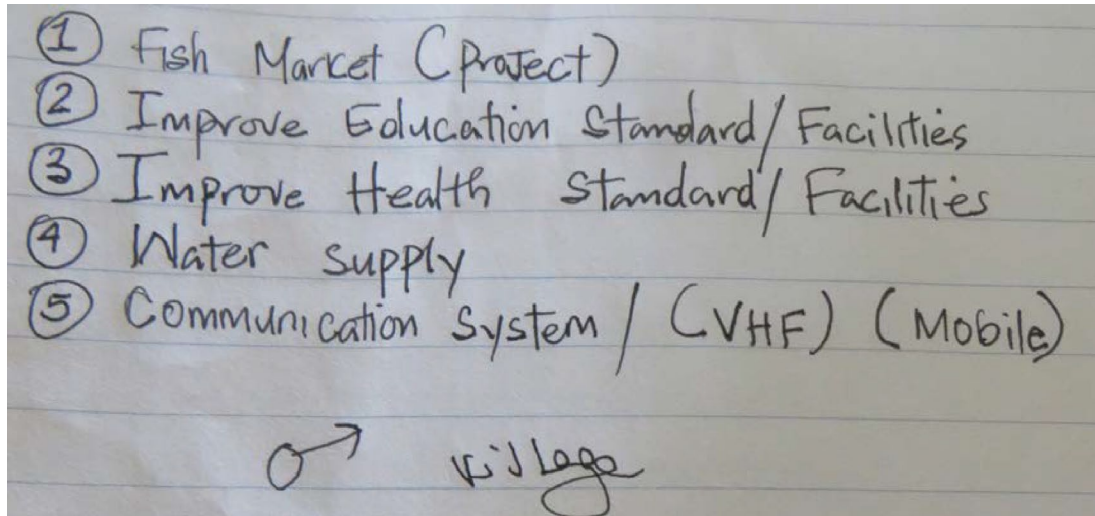 ① Fish Market (Project)
② Improve Education Standard/Facilities
③ Improve Health Standard/Facilities
④ Water supply
⑤ Communication System/(VHF) (Mobile)
♂ Village